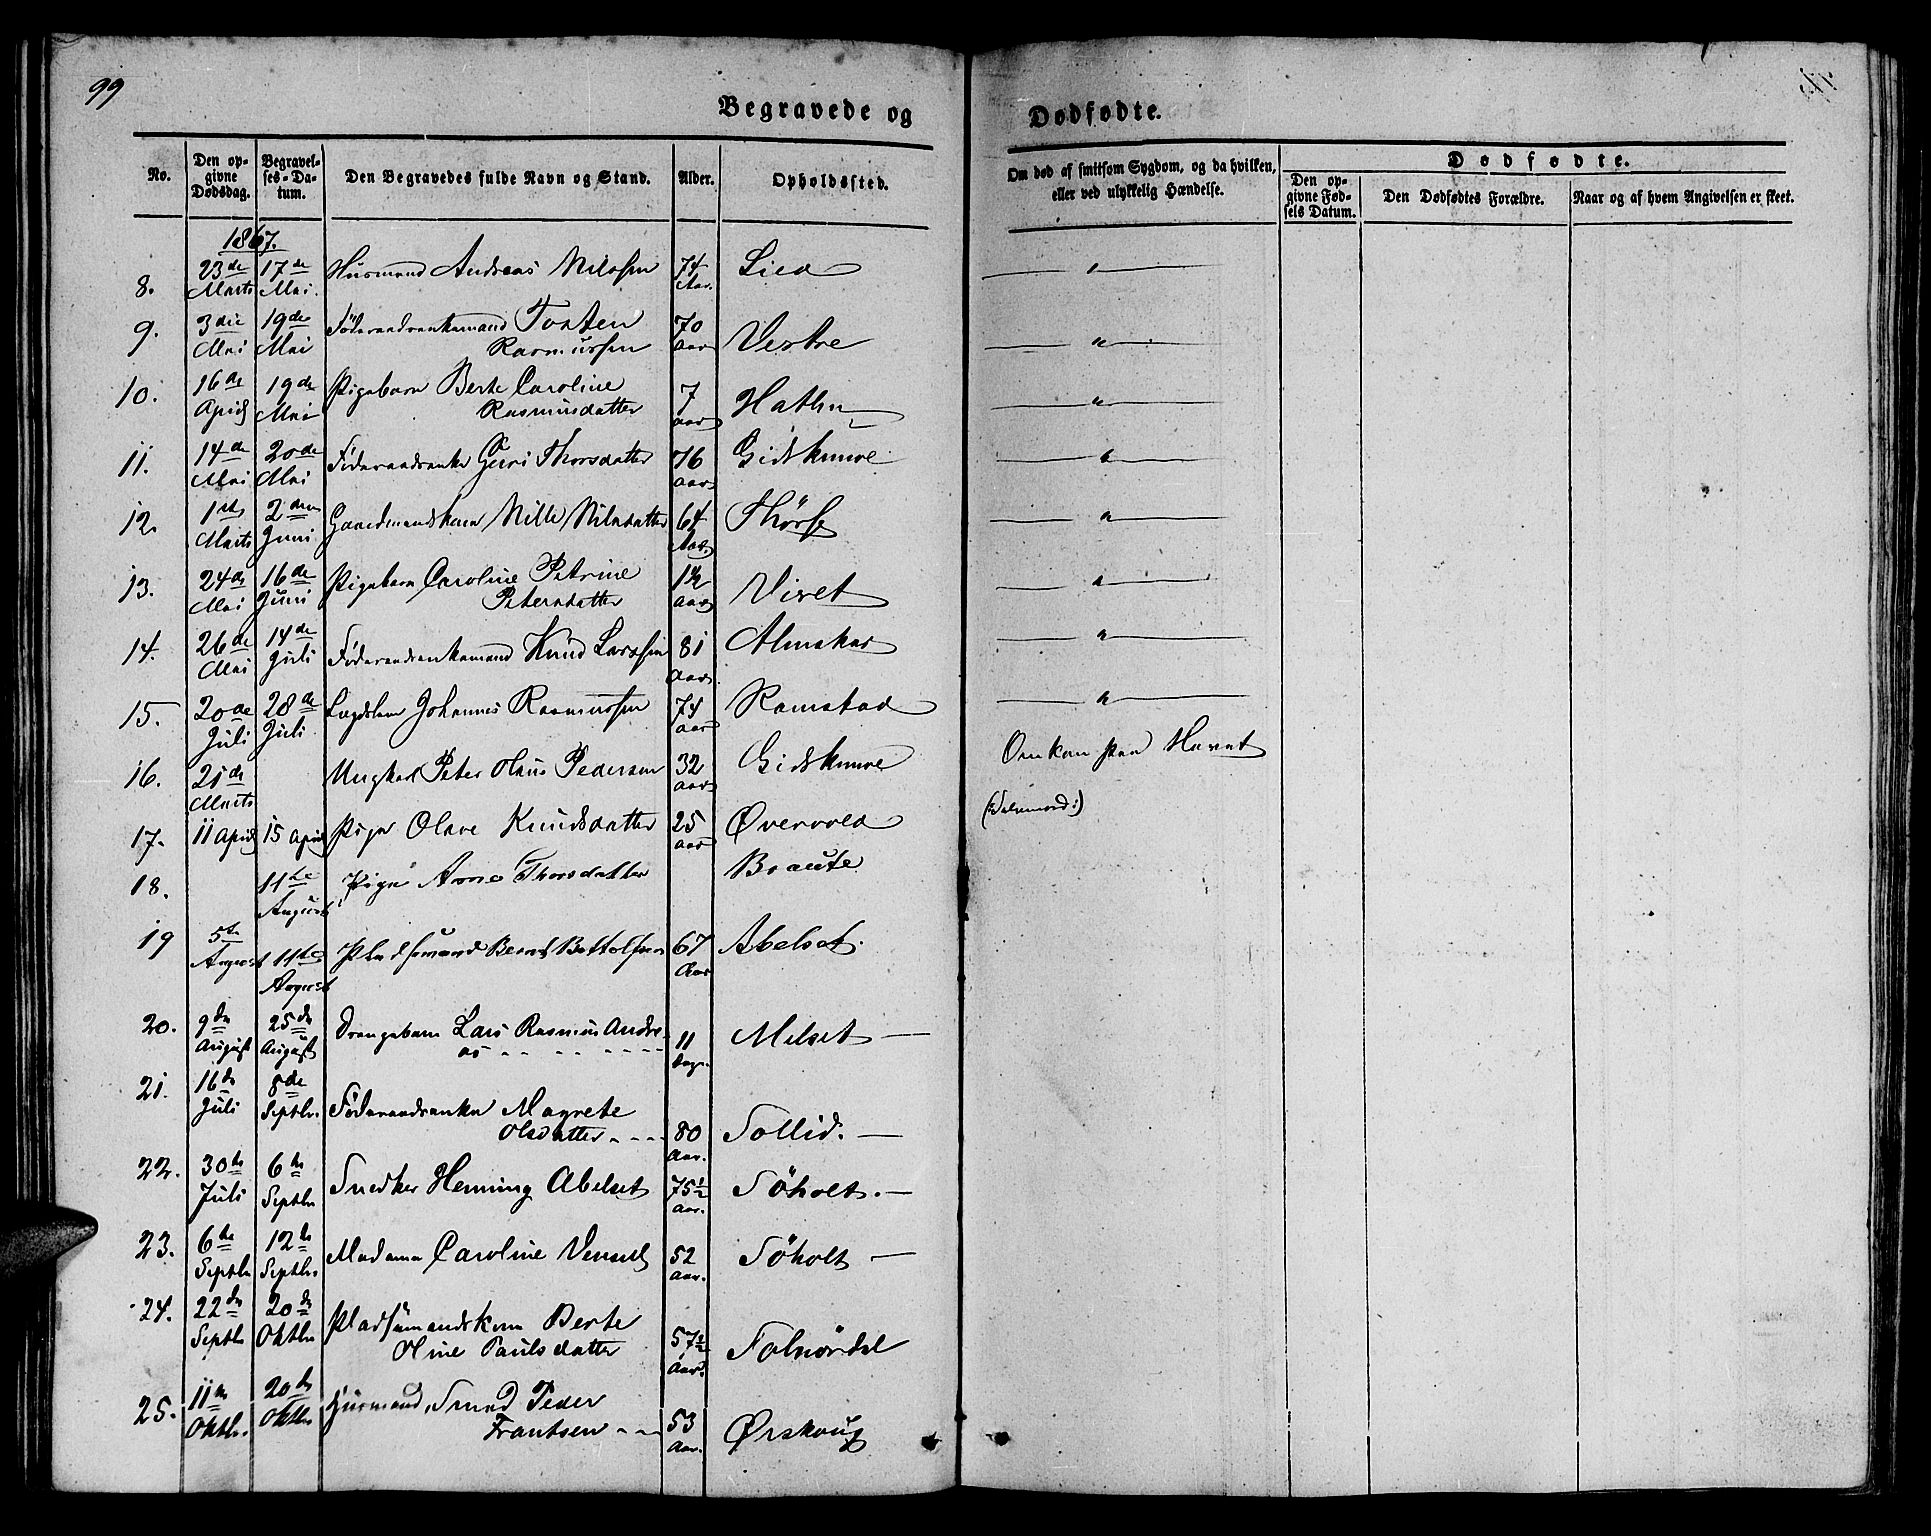 99
Begravede og
Dødfødte.
No.
Den op-
givne
Dødsdag.
Begravel-
ses-Da-
tum.
Den Begravedes fulde Navn og Stand.
Alder.
Opholdssted.
Om død af smitsom Sygdom, og da hvilken,
eller ved ulykkelig Hændelse.
Dødfødte.
Den op-
givne Fød-
sels Datum.
Den Dødfødtes Forældre.
Naar og af hvem Angivelsen er skeet.
1867.
8. 23de Marts 17de Mai. Husmand Andreas Nilssen 74 Aar. Lied "
9. 3die Mai 19de Mai Föderaadsenkemand Tosten
Rasmussen 70 aar Vestre "
10. 16de April 19de Mai Pigebarn Berte Caroline
Rasmusdatter 7 aar "
11. 14de Mai 20de Mai Föderaadsenke Guri Thorsdatter 76 aar "
12. 1ste Marts 2den Juni Gaardmandskone Nille Nilsdatter 64 Aar "
13. 24de Mai 16de Juni Pigebarn Caroline Petrine
Petersdatter 1½ aar Viset "
14. 26de Mai 14de Juli Föderaadsenkemand Knud Larssen 81 aar Almskar "
15. 20de Juli 28de Juli Lægdslem Johannes Rasmussen 74 aar Ramstad "
16. 21de Marts Ungkarl Peter Olaus Pedersen 32 aar Omkom paa Havet
17. 11 April 15 April Pige Olave Knudsdatter 25 aar Øvervold (Selvmord:)
18. 11te August Pige Anne Thorsdatter Braute
19 5te August 11te August Pladsemand Bernt Bottolfsen 67 Aar Abelset.
20. 9de August 25de August Drengebarn Lars Rasmus Andre-
as - - - - 11 dage. Melset —
21. 16de Juli 8de Septbr. Föderaadsenke Magrete
Olsdatter - - - 80 Aar. Sollid. —
22. 30te Juli 6te Septbr Snedker Henning Abelset 75½ Aar. Söholt. —
23. 6te Septbr 12te Septbr. Madame Caroline Vensel 52 Aar. Söholt —
24. 22de Septbr 20de Oktbr Pladsemandskone Berte
Oline Paulsdatter 57½ Aar. Solnördal
25. 11te Oktbr. 20de Oktbr Husmand, Smed Peder
Frantsen - - 53 Aar. Ørskoug